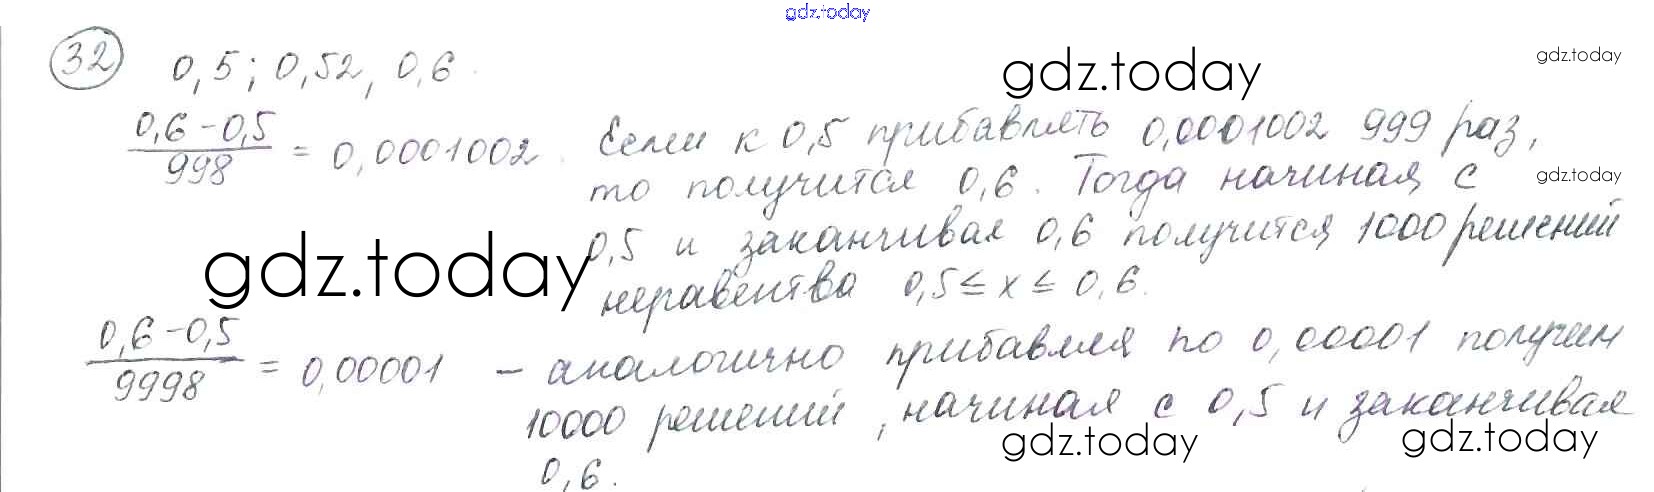 gdz.today
32 0,5; 0,52, 0,6.
gdz.today
gdz.today
0,6-0,5
998
= 0,0001002. Если к 0,5 прибавлять 0,0001002 999 раз,
то получится 0,6. Тогда начиная с
gdz.today
0,5 и заканчивая 0,6 получится 1000 решений
gdz.today
неравенства 0,5≤x≤0,6.
0,6-0,5
9998
= 0,00001 - аналогично прибавляя по 0,00001 получим
10000 решений, начиная с 0,5 и заканчивая
gdz.today
gdz.today
0,6.